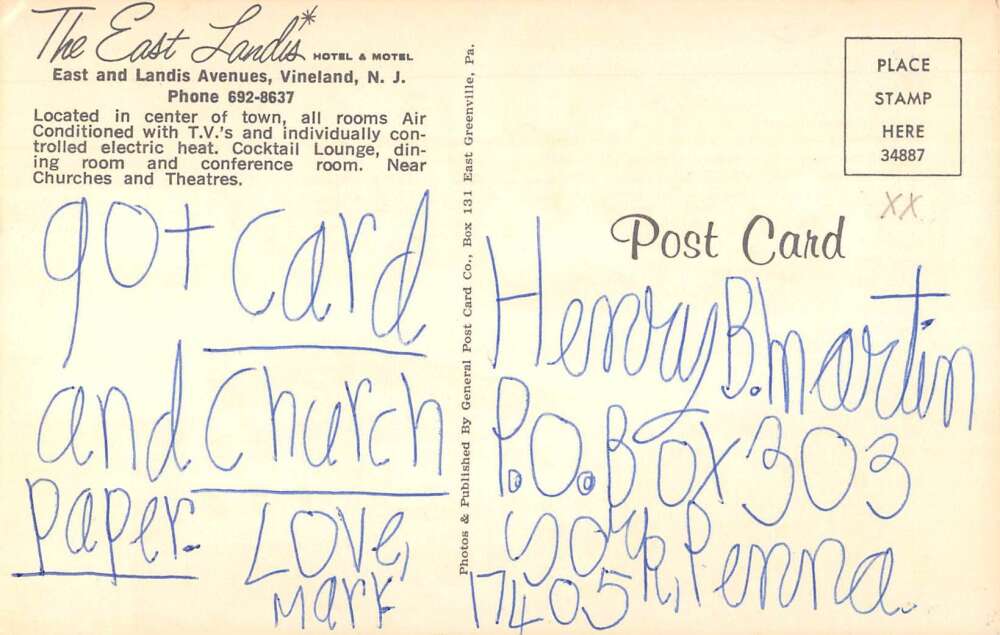 The East Landis* HOTEL & MOTEL
East and Landis Avenues, Vineland, N. J.
Phone 692-8637
Located in center of town, all rooms Air
Conditioned with T.V.'s and individually con-
trolled electric heat. Cocktail Lounge, din-
ing room and conference room. Near
Churches and Theatres.
got card
and Church
paper.
Love,
Mark
Photos & Published By General Post Card Co., Box 131 East Greenville, Pa.
PLACE
STAMP
HERE
34887
XX
Post Card
Henry B. Martin
P.O. Box 303
York, Penna.
17405